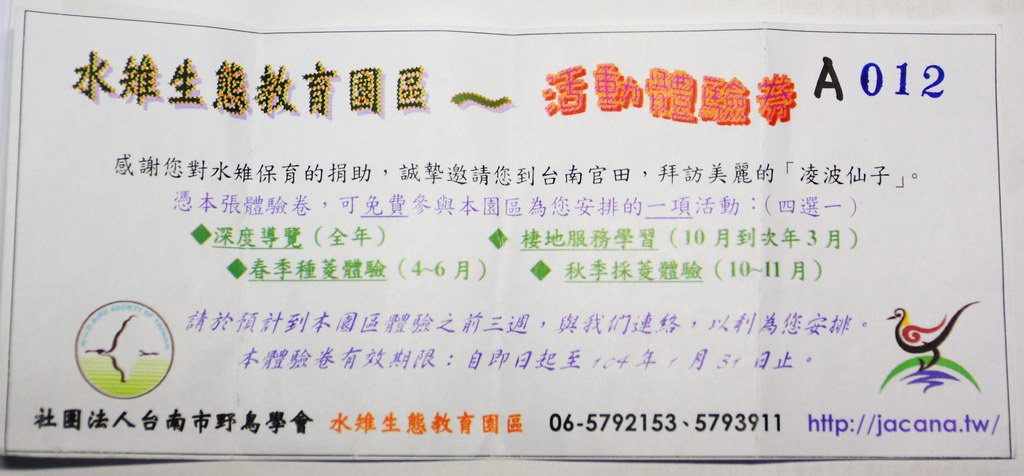 水雉生態教育園區～活動體驗券 A 012
感謝您對水雉保育的捐助，誠摯邀請您到台南官田，拜訪美麗的「凌波仙子」。
憑本張體驗卷，可免費參與本園區為您安排的一項活動：(四選一)
◆深度導覽（全年） ◆ 棲地服務學習（10 月到次年 3 月）
◆春季種菱體驗（4~6 月） ◆ 秋季採菱體驗（10~11 月）
請於預計到本園區體驗之前三週，與我們連絡，以利為您安排。
本體驗卷有效期限：自即日起至 104 年 1 月 31 日止。
社團法人台南市野鳥學會 水雉生態教育園區 06-5792153、5793911 http://jacana.tw/